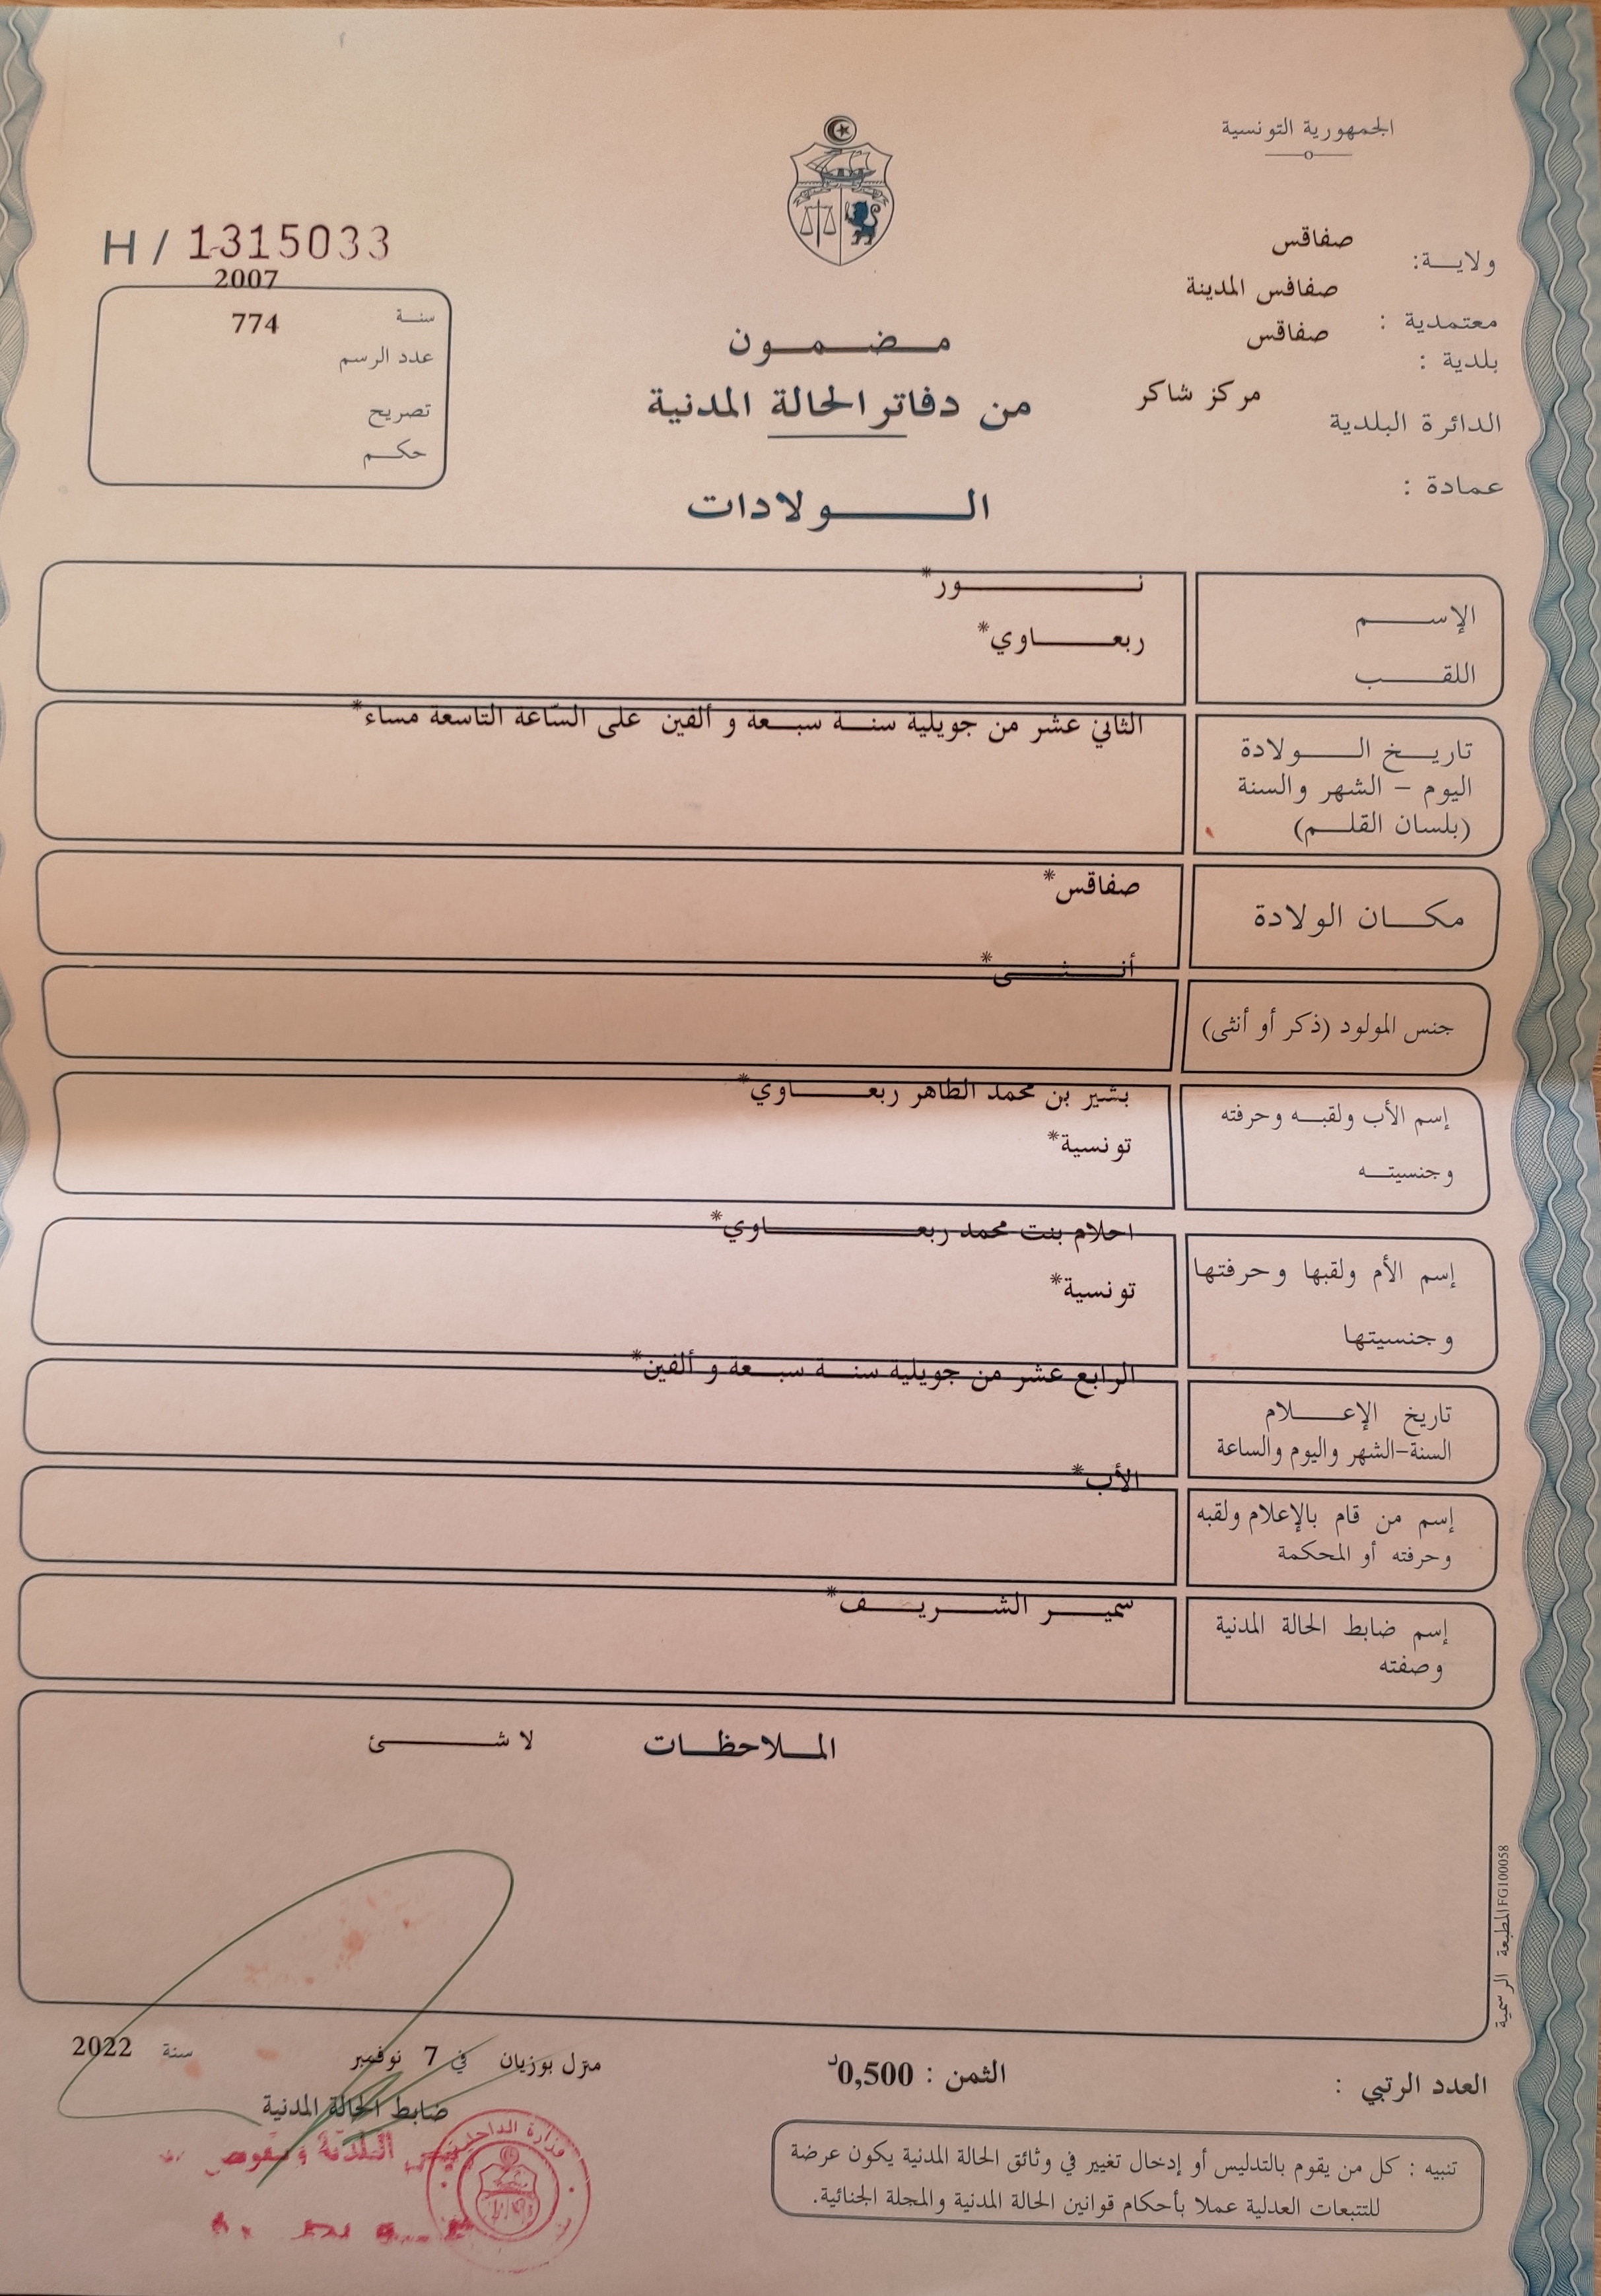 الجمهورية التونسية
H / 1315033
ولاية: صفاقس
معتمدية : صفاقس المدينة
بلدية : صفاقس
الدائرة البلدية مركز شاكر
عمادة :
2007
سنة
774
عدد الرسم
تصريح
حكم
مضمون
من دفاتر الحالة المدنية
الولادات
الإسم
نور*
اللقب
ربعاوي*
تاريخ الولادة
اليوم - الشهر والسنة
(بلسان القلم)
الثاني عشر من جويلية سنة سبعة و ألفين على السّاعة التاسعة مساء*
مكان الولادة
صفاقس*
جنس المولود (ذكر أو أنثى)
أنثى*
إسم الأب ولقبه وحرفته
وجنسيته
بشير بن محمد الطاهر ربعاوي*
تونسية*
إسم الأم ولقبها وحرفتها
وجنسيتها
احلام بنت محمد ربعاوي*
تونسية*
تاريخ الإعلام
السنة-الشهر واليوم والساعة
الرابع عشر من جويلية سنة سبعة و ألفين*
إسم من قام بالإعلام ولقبه
وحرفته أو المحكمة
الأب*
إسم ضابط الحالة المدنية
وصفته
سمير الشريف*
الملاحظات
لا شئ
المطبعة الرسمية FG100058
العدد الرتبي :
الثمن : 0,500د
منزل بوزيان في 7 نوفمبر سنة 2022
ضابط الحالة المدنية
وزارة الداخلية
تنبيه : كل من يقوم بالتدليس أو إدخال تغيير في وثائق الحالة المدنية يكون عرضة
للتتبعات العدلية عملا بأحكام قوانين الحالة المدنية والمجلة الجنائية.